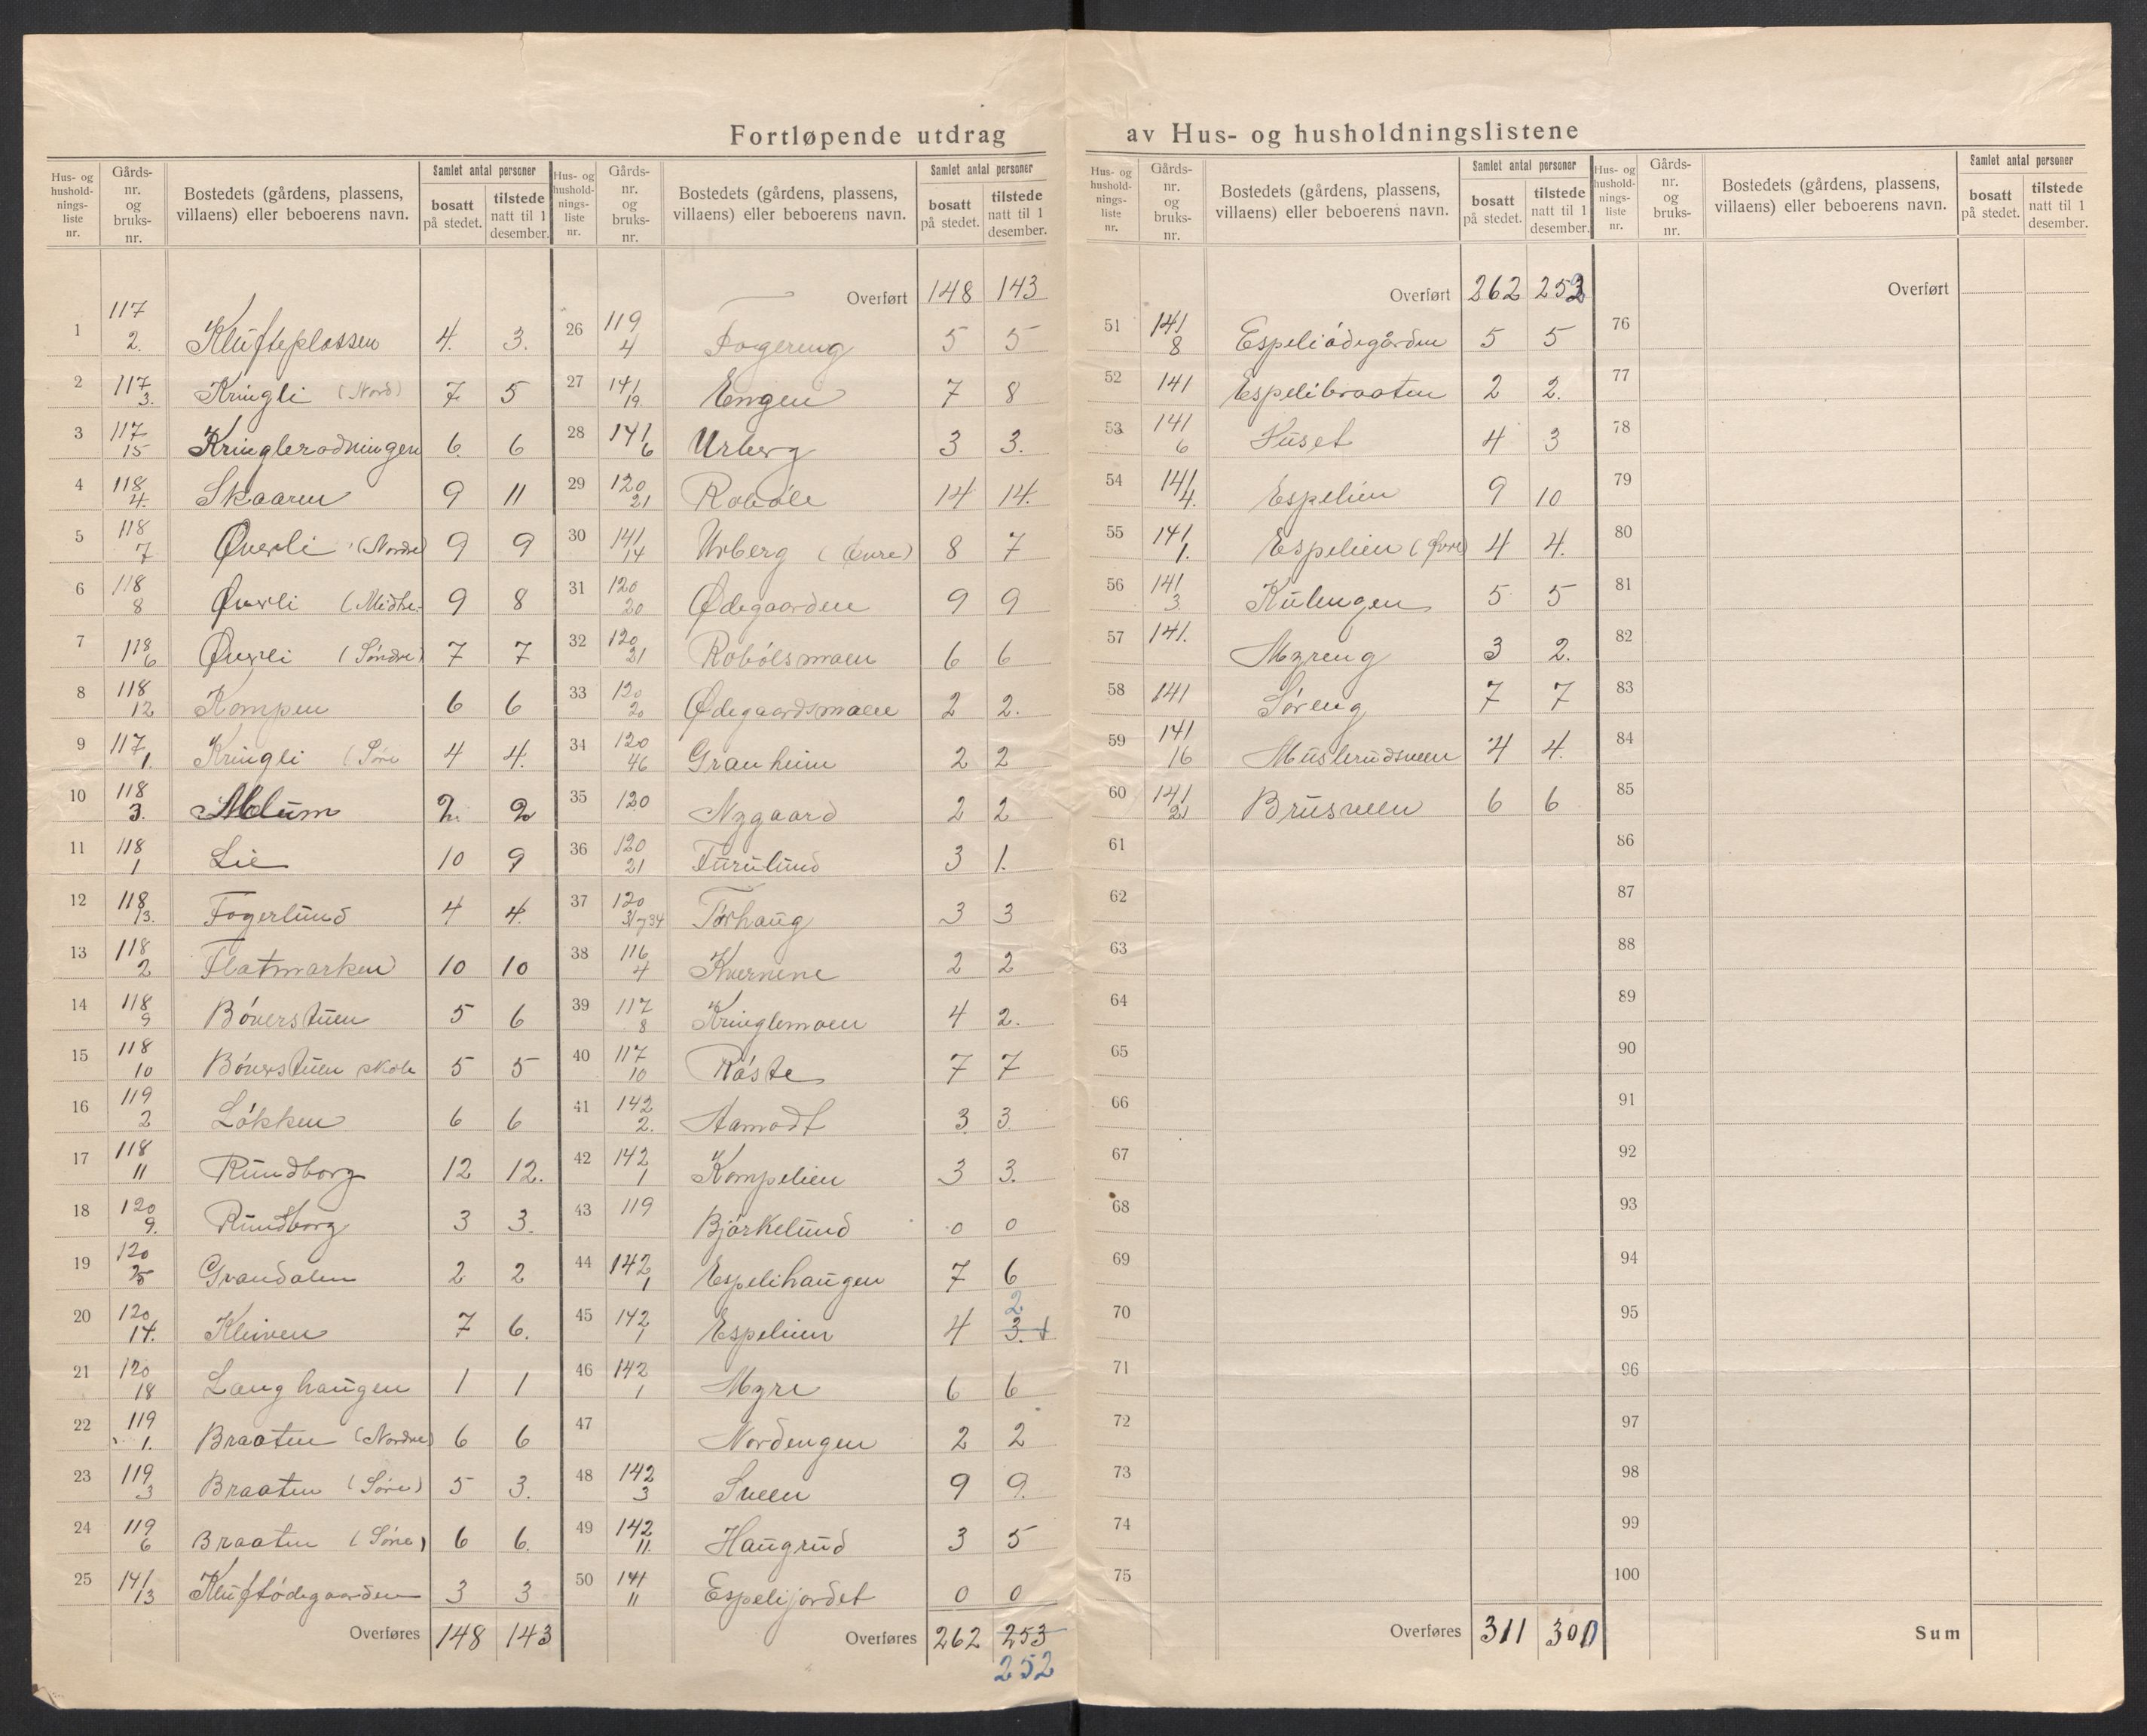 Fortløpende utdrag av Hus- og husholdningslistene
Hus- og hushold-nings-liste nr. | Gårds-nr. og bruks-nr. | Bostedets (gårdens, plassens, villaens) eller beboerens navn. | Samlet antal personer | bosatt på stedet. | tilstede natt til 1 desember.
1 117/2. Klufteplassen 4. 3.
2 117/3. Kringli (Nord) 7 5
3 117/15 Kringlerodningen 6. 6
4 118/4. Skaaren 9 11
5 118/7 Øverli (Nordre) 9 9
6 118/8 Øverli (Midtre- 9 8
7 118/6 Øverli (Søndre) 7 7
8 118/12 Kompen 6 6
9 117/1. Kringli (Søre 4 4.
10 118/3. Melum 2. 2
11 118/1 Lie 10 9
12 118/13. Fagerlund 4 4.
13 118/2 Flatmarken 10 10
14 118/9 Böverstuen 5 6
15 118/10 Böverstuen skole 5 5
16 119/2 Lökken 6 6
17 118/11 Rundborg 12 12.
18 120/9. Rundborg 3 3.
19 120/25 Grandalen 2 2
20 120/14. Kleiven 7 6.
21 120/18 Langhaugen 1 1
22 119/1. Braaten (Nordre) 6 6
23 119/3 Braaten (Søre) 5 3.
24 119/6 Braaten (Søre) 6 6.
25 141/13 Kluftødegaarden 3 3
Overføres 148 143
Hus- og hushold-nings-liste nr. | Gårds-nr. og bruks-nr. | Bostedets (gårdens, plassens, villaens) eller beboerens navn. | Samlet antal personer | bosatt på stedet. | tilstede natt til 1 desember.
Overført 148 143
26 119/4 Fagereng 5 5
27 141/19. Engen 7 8
28 141/6 Urberg 3 3.
29 120/21 Robøle 14 14.
30 141/14 Urberg (Øvre) 8 7
31 120/20 Ødegaarden 9 9
32 120/21 Robølsmoen 6 6
33 120/20 Ødegaardsmoen 2 2.
34 120/46 Granheim 2 2
35 120 Nygaard 2 2
36 120/21 Furulund 3 1.
37 120/31 og 34 Torhaug 3 3
38 116/4 Kvernene 2 2
39 117/8 Kringlemoen 4 2.
40 117/10 Råste 7 7
41 142/2. Aamodt 3 3.
42 142/1 Kompelien 3 3.
43 119 Bjørkelund 0 0
44 142/1 Espelihaugen 7 6
45 142/1 Espelien 4 3. 2
46 142/1 Myre 6 6
47 Nordengen 2 2
48 142/3 Sveen 9 9.
49 142/11. Haugrud 3 5
50 141/11 Espelijordet 0 0
Overføres 262 253
252
Hus- og hushold-nings-liste nr. | Gårds-nr. og bruks-nr. | Bostedets (gårdens, plassens, villaens) eller beboerens navn. | Samlet antal personer | bosatt på stedet. | tilstede natt til 1 desember.
Overført 262 252
51 141/8 Espeliødegården 5 5
52 141 Espelibraaten 2 2.
53 141/6 Huset 4 3
54 141/4. Espelien 9 10
55 141/1. Espelien (Øvre) 4 4.
56 141/3. Kulengen 5 5
57 141. Myreng 3 2.
58 141 Søreng 7 7
59 141/16 Muslerudsveen 4 4.
60 141/21 Brusveen 6 6
61
62
63
64
65
66
67
68
69
70
71
72
73
74
75
Overføres 311 300
Hus- og hushold-nings-liste nr. | Gårds-nr. og bruks-nr. | Bostedets (gårdens, plassens, villaens) eller beboerens navn. | Samlet antal personer | bosatt på stedet. | tilstede natt til 1 desember.
Overført
76
77
78
79
80
81
82
83
84
85
86
87
88
89
90
91
92
93
94
95
96
97
98
99
100
Sum